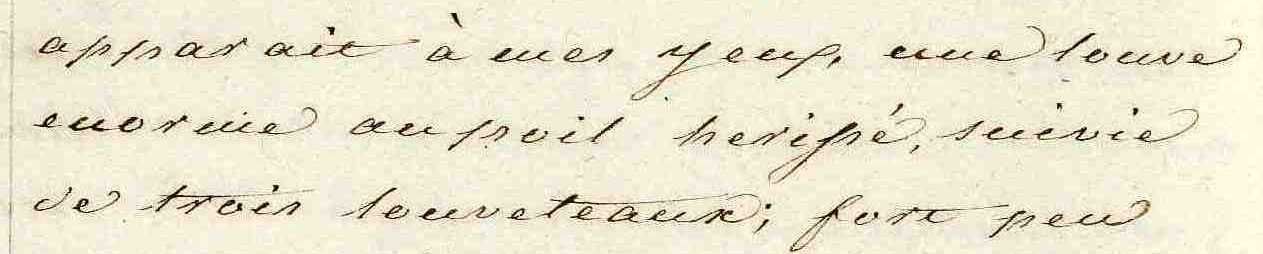 apparait à mes yeux, une louve
enorme au poil herissé, suivie
de trois louveteaux; fort peu